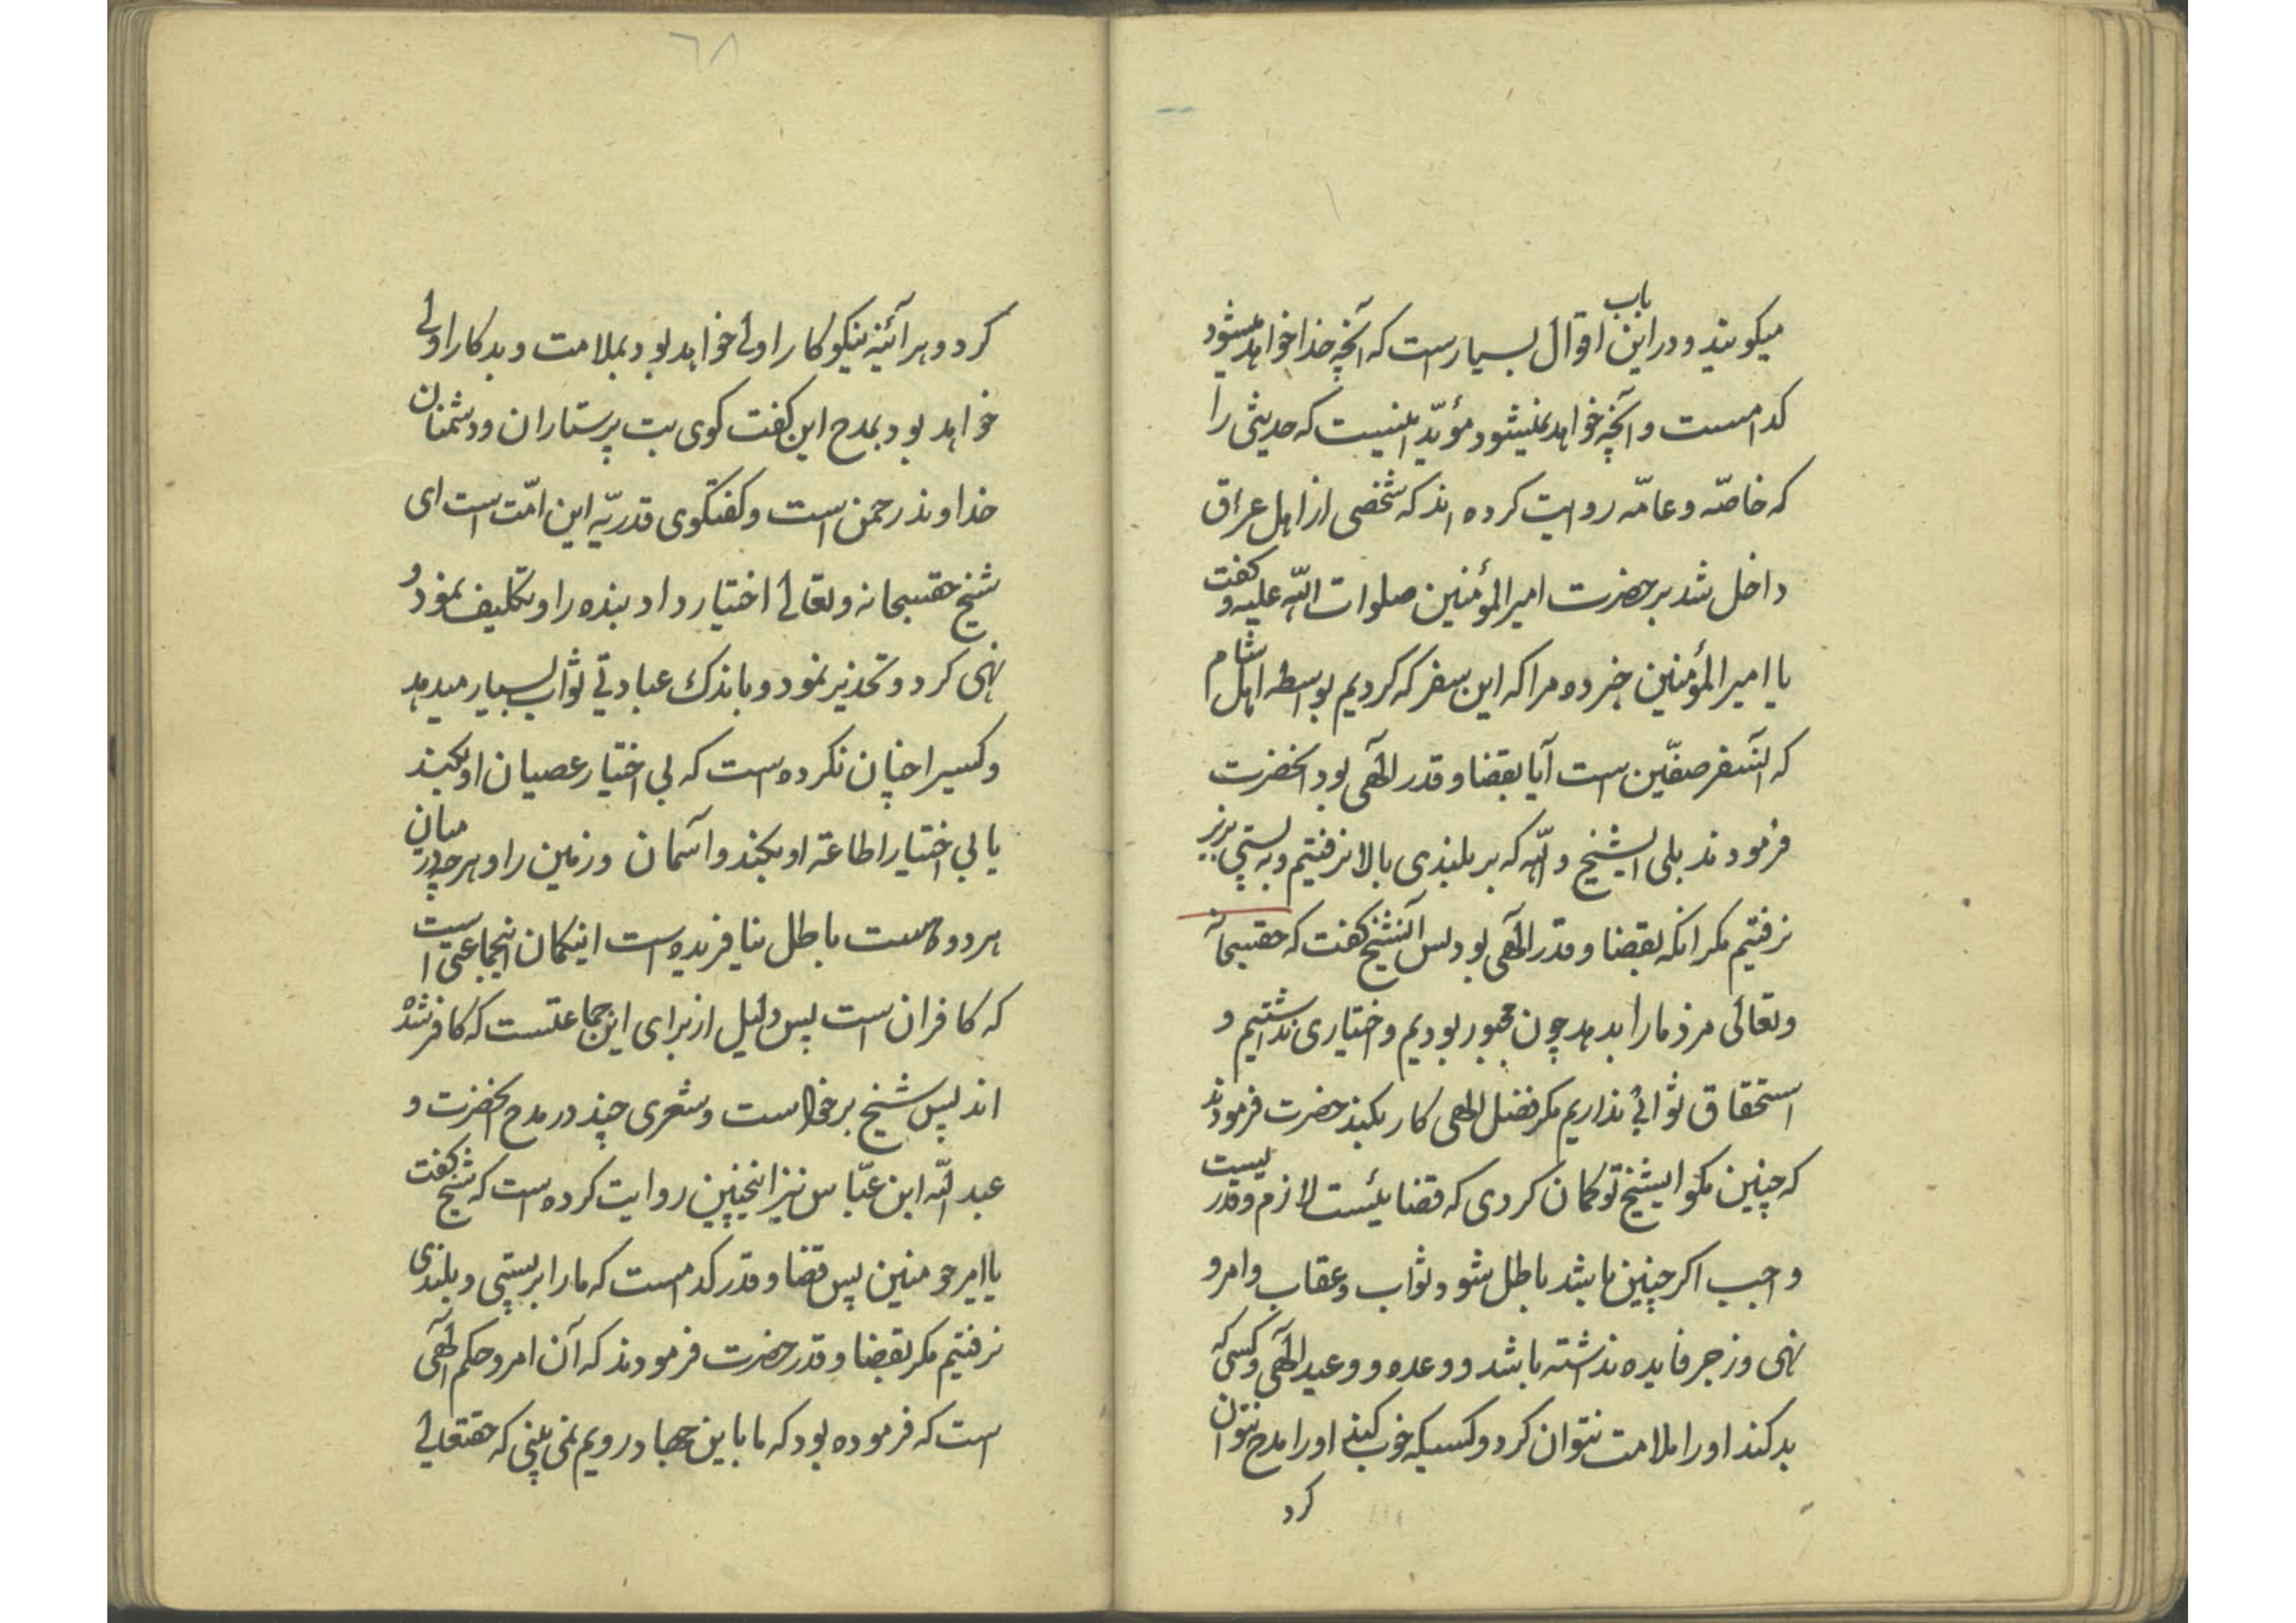 میکویند و در این باب اقوال بسیارست که آنچه خدا خواهد میشود
کدامست و آنچه خواهد نمیشود مؤیّد اینست که حدیثی را
که خاصّه و عامّه روایت کرده اند که شخصی از اهل عراق
داخل شد بر حضرت امیر المؤمنین صلوات اللّه علیه و کفت
یا امیر المؤمنین خبر ده مرا که این سفر که کردیم بواسطه اهل شام
که آنسفر صفّین است آیا بقضا و قدر الهی بود انحضرت
فرمودند بلی ایشیخ و اللّه که بر بلندی بالا نرفتیم و به پستی بزیر
نرفتیم مکر انکه بقضا و قدر الهی بود پس آنشیخ کفت که حقسبحانه
وتعالی مزد ما را بدهد چون مجبور بودیم و اختیاری نداشتیم و
استحقاق ثوابی نداریم مکر فضل الهی کار بکند حضرت فرمودند
که چنین مکو ایشیخ تو کمان کردی که قضائیست لازم و قدریست
واجب اکر چنین باشد باطل شود ثواب و عقاب و امر و
نهی و زجر فایده نداشته باشد و وعده و وعید الهی و کسی که
بد کند او را ملامت نتوان کرد و کسیکه خوب کند او را مدح نتوان
کرد
٦٨
کرد و هر آئینه نیکو کار اولی خواهد بود بملامت و بدکار اولی
خواهد بود بمدح این کفت کوی بت پرستاران و دشمنان
خداوند رحمن است و کفتکوی قدریّه این امّت است ای
شیخ حقسبحانه وتعالی اختیار داد بنده را و تکلیف نمود و
نهی کرد و تحذیر نمود و باندک عبادتی ثواب بسیار میدهد
و کسیرا چنان نکرده است که بی اختیار عصیان او بکند
یا بی اختیار اطاعة او بکند و آسمان و زمین را و هر چه در میان
هر دو هست باطل نیافریده است این کمان انجماعتی است
که کافران است پس دلیل از برای این جماعتست که کافر شده
اند پس شیخ برخواست و شعری چند در مدح انحضرت و
عبد اللّه ابن عبّاس نیز اینچنین روایت کرده است که شیخ کفت
یا امیر مومنین پس قضا و قدر کدامست که ما را بر پستی و بلندی
نرفتیم مکر بقضا و قدر حضرت فرمودند که آن امر و حکم الهی
است که فرموده بود که ما باین جهاد رویم نمی بینی که حقتعالی